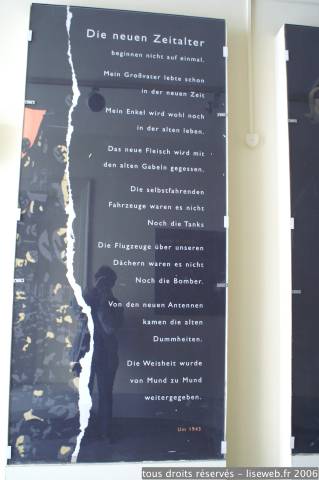 Die neuen Zeitalter
beginnen nicht auf einmal.
Mein Großvater lebte schon
in der neuen Zeit
Mein Enkel wird wohl noch
in der alten leben.
Das neue Fleisch wird mit
den alten Gabeln gegessen.
Die selbstfahrenden
Fahrzeuge waren es nicht
Noch die Tanks
Die Flugzeuge über unseren
Dächern waren es nicht
Noch die Bomber.
Von den neuen Antennen
kamen die alten
Dummheiten.
Die Weisheit wurde
von Mund zu Mund
weitergegeben.
Um 1943
tous droits réservés - liseweb.fr 2006